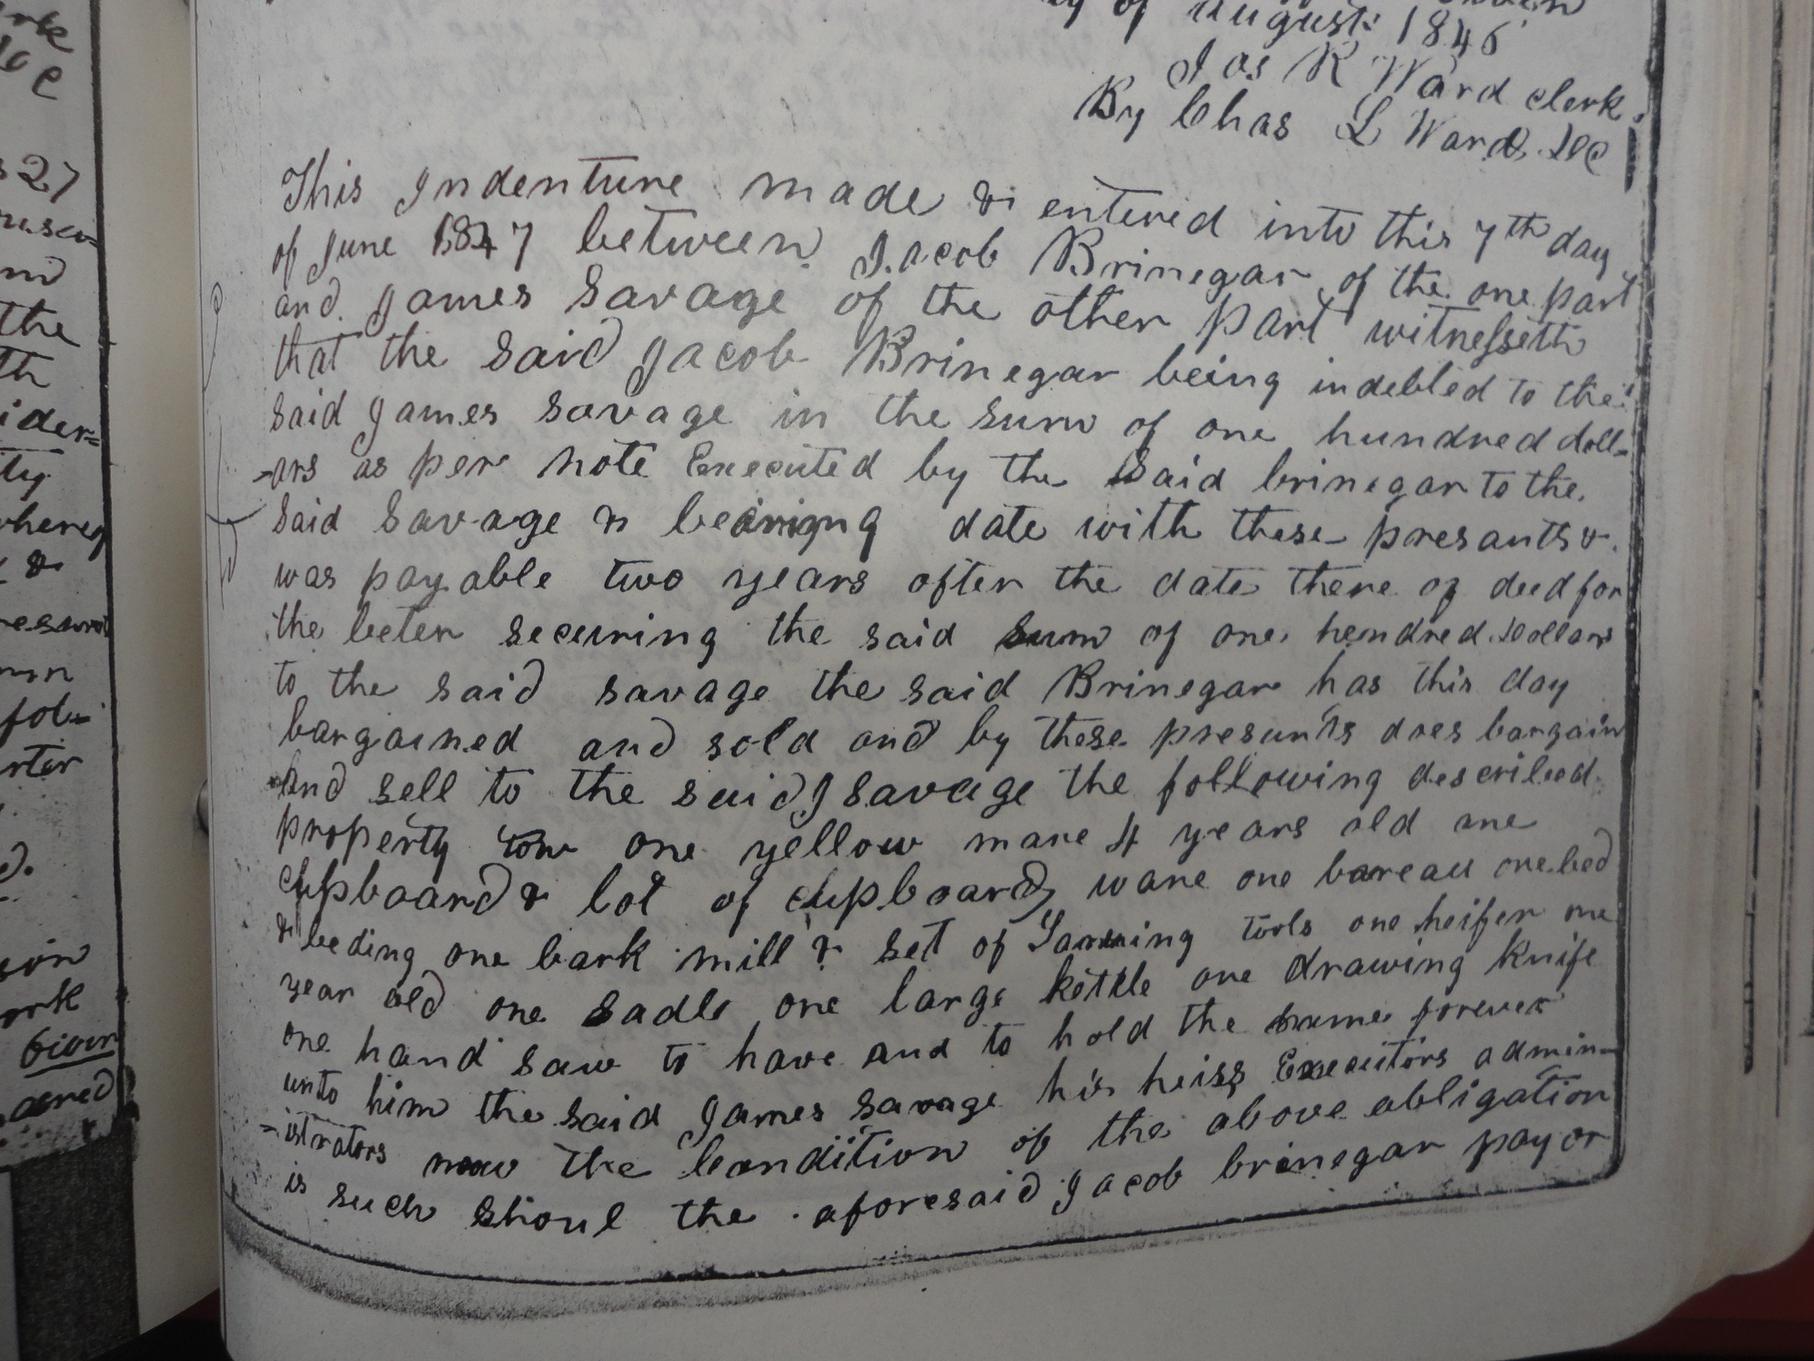 y of August 1846
Jas R Ward clerk
By Chas L Ward. DC
This Indenture made & entered into this 7th day
of June 1847 between Jacob Brinegar of the one part
and James Savage of the other part witnesseth
that the said Jacob Brinegar being indebted to the
said James Savage in the sum of one hundred doll-
-ars as per note Executed by the said brinegar to the
said Savage & bearing date with these presants &
was payable two years after the date there of deed for
the beter securing the said sum of one hundred Dollars
to the said savage the said Brinegar has this day
bargained and sold and by these presunts does bargain
And sell to the said J Savage the following described
property tow one yellow mare 4 years old one
cupboard & lot of cupboard ware one bareau one bed
& beding one bark mill & set of Tanning tools one heifer one
year old one sadle one large kettle one drawing knife
one hand saw to have and to hold the same forever
unto him the said James Savage his heirs Executors admin-
-istrators now the Condition of the above obligation
is such shoul the aforesaid Jacob brinegar pay or
rk
27
nd
the
th
ider=
ty
&
rter
ork
Given